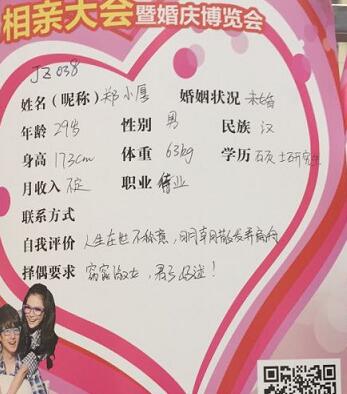 相亲大会暨婚庆博览会
JZ 038
姓名（昵称）郑小厚 婚姻状况 未婚
年龄 29岁 性别 男 民族 汉
身高 173cm 体重 63kg 学历 硕士研究生
月收入 不定 职业 待业
联系方式
自我评价 人生在世不称意，明朝散发弄扁舟
择偶要求 窈窕淑女，君子好逑！